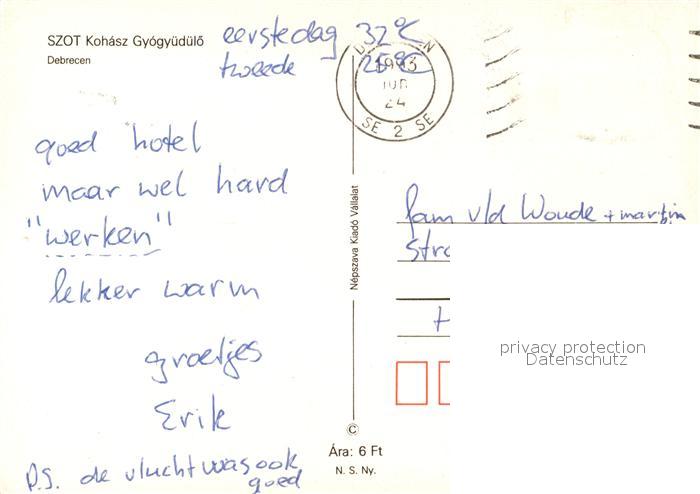 SZOT Kohász Gyógyüdülő
Debrecen
eerste dag 32°C
tweede 25°C
goed hotel
maar wel hard
"werken"
lekker warm
groetjes
Erik
P.S. de vlucht was ook
goed
Népszava Kiadó Vállalat
©
Ára: 6 Ft
N. S. Ny.
1993
24
SE 2 SE
fam v/d Woude + martin
privacy protection
Datenschutz